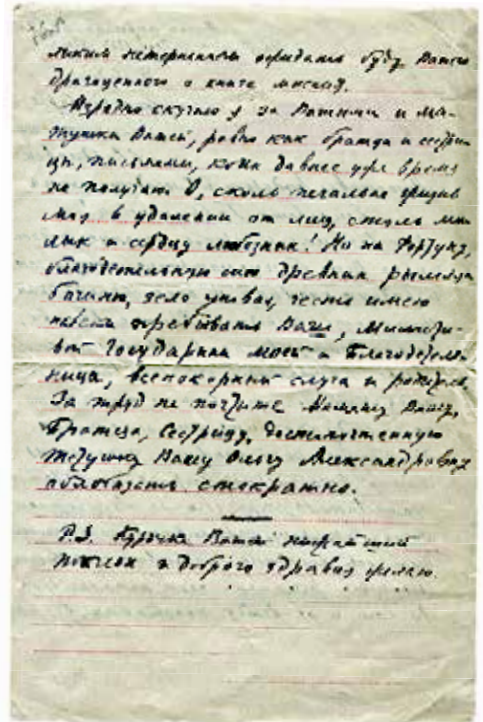 ликим нетерпением ожидать буду Вашего
драгоценного о книге мнения.
Изрядно скучаю я за Вашими и ма-
тушки Вашей, равно как братца и сестри-
цы, письмами, коих давнее уже время
не получаю. О, сколь печальна жизнь
моя в удалении от лиц, столь ми-
лых и сердцу любезных! Но на Фортуну,
благодетельную сию древних римлян
богиню, зело уповая, честь имею
навсегда пребывать Ваш, Милости-
вой Государыни моей и Благодетель-
ницы, всепокорный слуга и родитель.
За труд не почтите Мамашу Вашу,
Братца, Сестрицу, достопочтенную
тётушку Вашу Ольгу Александровну
облобызать стократно.
P.S. Вашей нижайший
поклон и доброго здравия желаю.